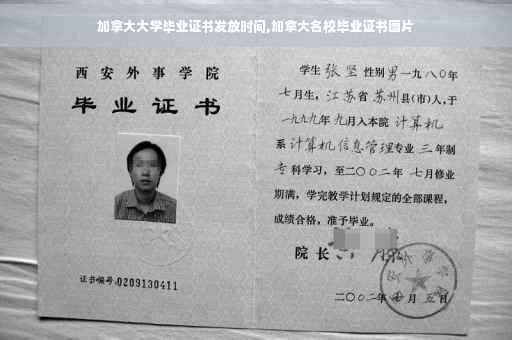 加拿大大学毕业证书发放时间,加拿大名校毕业证书图片
西安外事学院
毕业证书
证书编号:0209130411
学生张坚性别男一九八〇年
七月生,江苏省苏州县(市)人,于
一九九九年九月入本院计算机
系计算机信息管理专业三年制
专科学习,至二〇〇二年七月修业
期满,学完教学计划规定的全部课程,
成绩合格,准予毕业。
院长
二〇〇二年 月五日